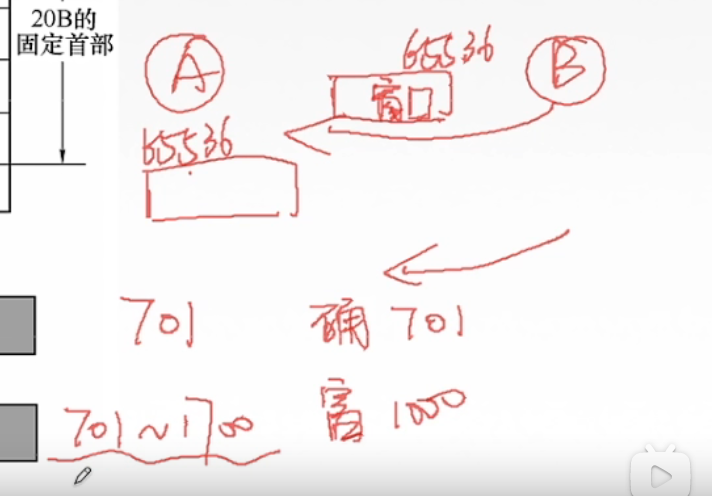 20B的
固定首部
A
65536
B
窗口
65536
701
确 701
701~1700
窗 1000